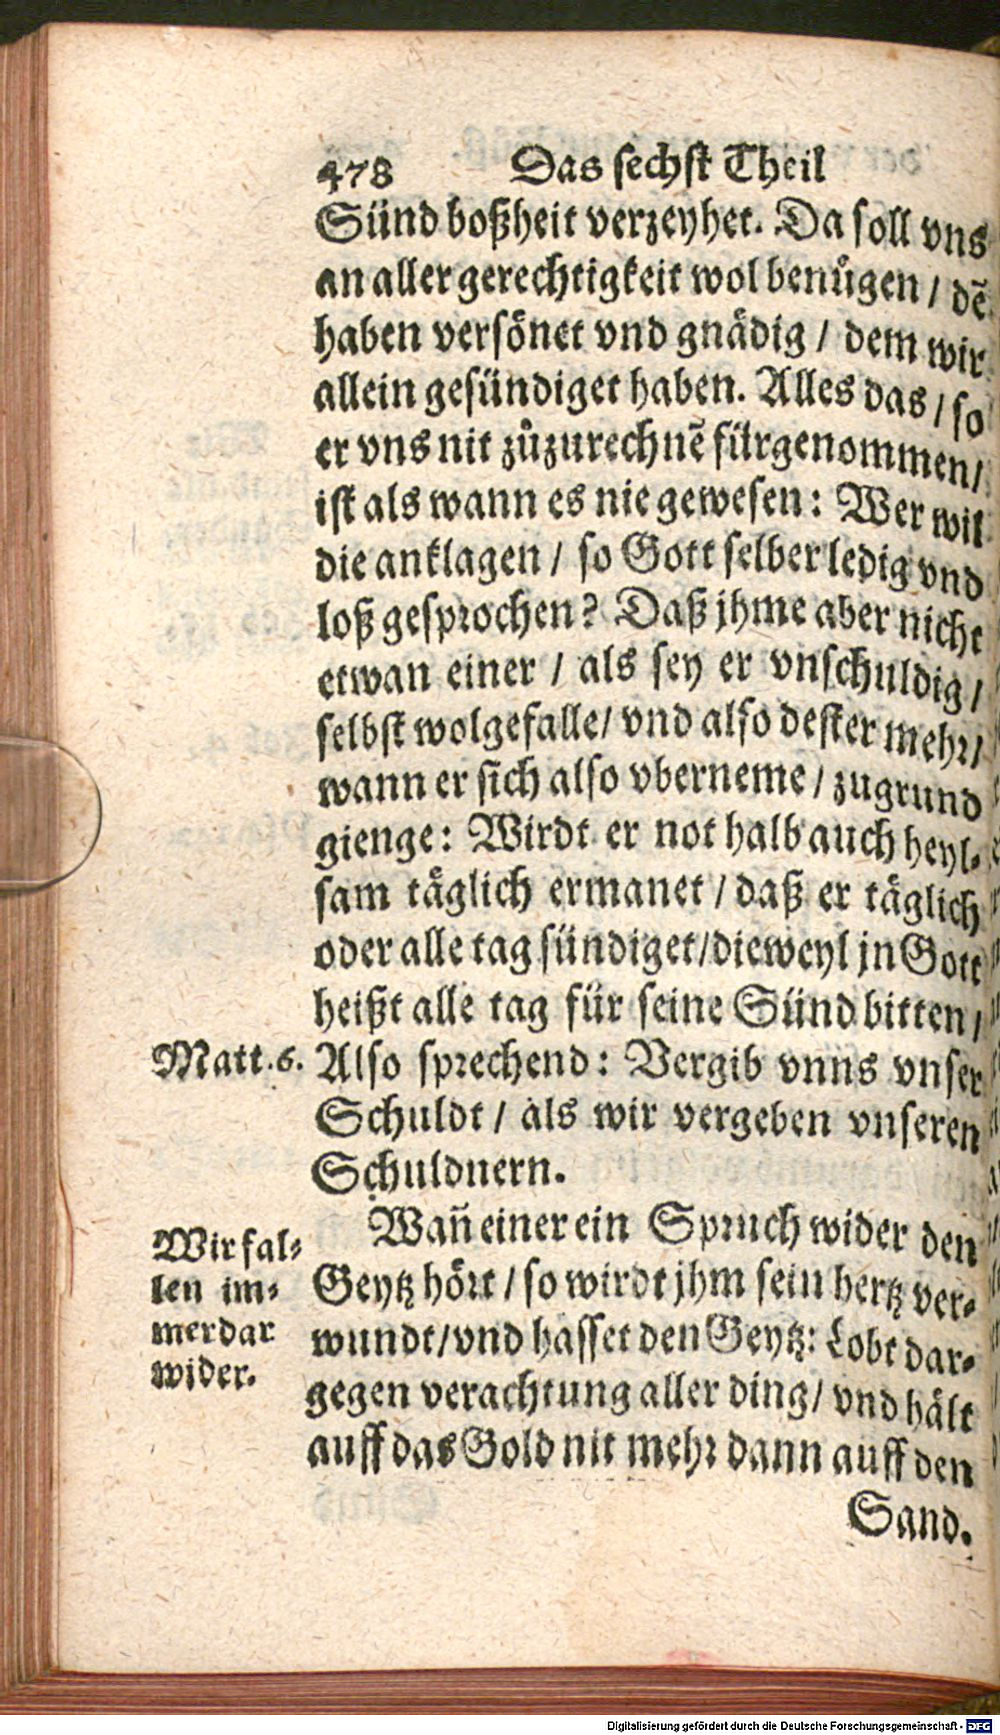 478 Das sechst Theil
Sünd boßheit verzeyhet. Da soll vns
an aller gerechtigkeit wol benuͤgen / dẽ
haben versoͤnet vnd gnaͤdig / dem wir
allein gesündiget haben. Alles das / so
er vns nit zůzurechnẽ fürgenommen /
ist als wann es nie gewesen: Wer wil
die anklagen / so Gott selber ledig vnd
loß gesprochen? Daß jhme aber nicht
etwan einer / als sey er vnschuldig /
selbst wolgefalle / vnd also dester mehr /
wann er sich also vberneme / zugrund
gienge: Wirdt er not halb auch heyl-
sam taͤglich ermanet / daß er taͤglich
oder alle tag sündiget / dieweyl jn Gott
heißt alle tag für seine Sünd bitten /
Matt. 6. Also sprechend: Vergib vnns vnser
Schuldt / als wir vergeben vnseren
Schuldnern.
Wañ einer ein Spruch wider den
Wir fal-
Geytz hoͤrt / so wirdt jhm sein hertz ver-
len im-
wundt / vnd hasset den Geytz: Lobt dar-
merdar
gegen verachtung aller ding / vnd haͤlt
wider.
auff das Gold nit mehr dann auff den
Sand.
Digitalisierung gefördert durch die Deutsche Forschungsgemeinschaft - DFG